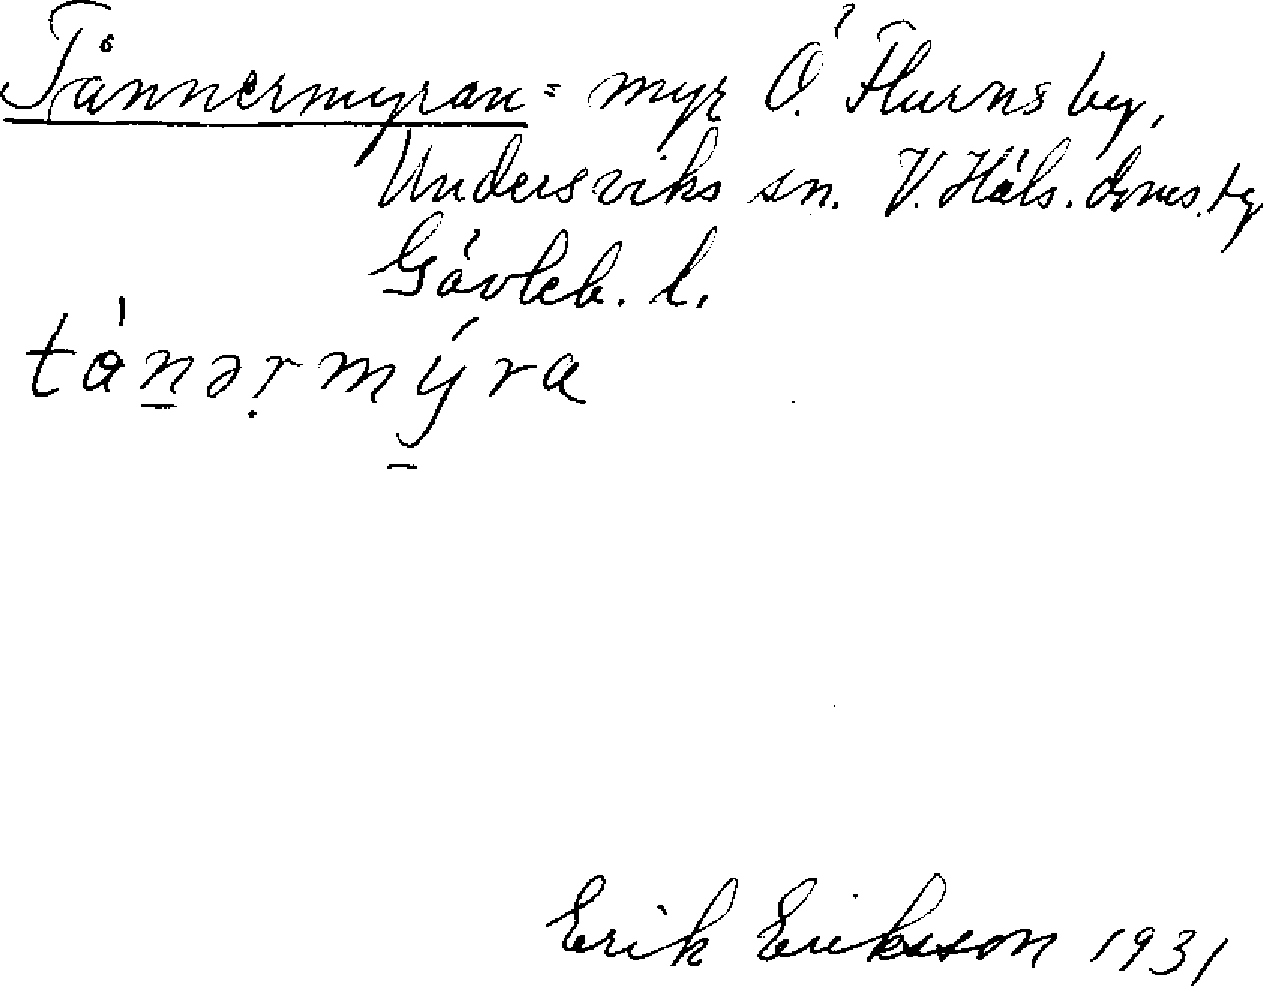 Tånnermyran = myr Ö. Flurns by,
Undersviks sn. V. Häls. doms. hg
Gävleb. l.
tånərmýra
Erik Eriksson 1931